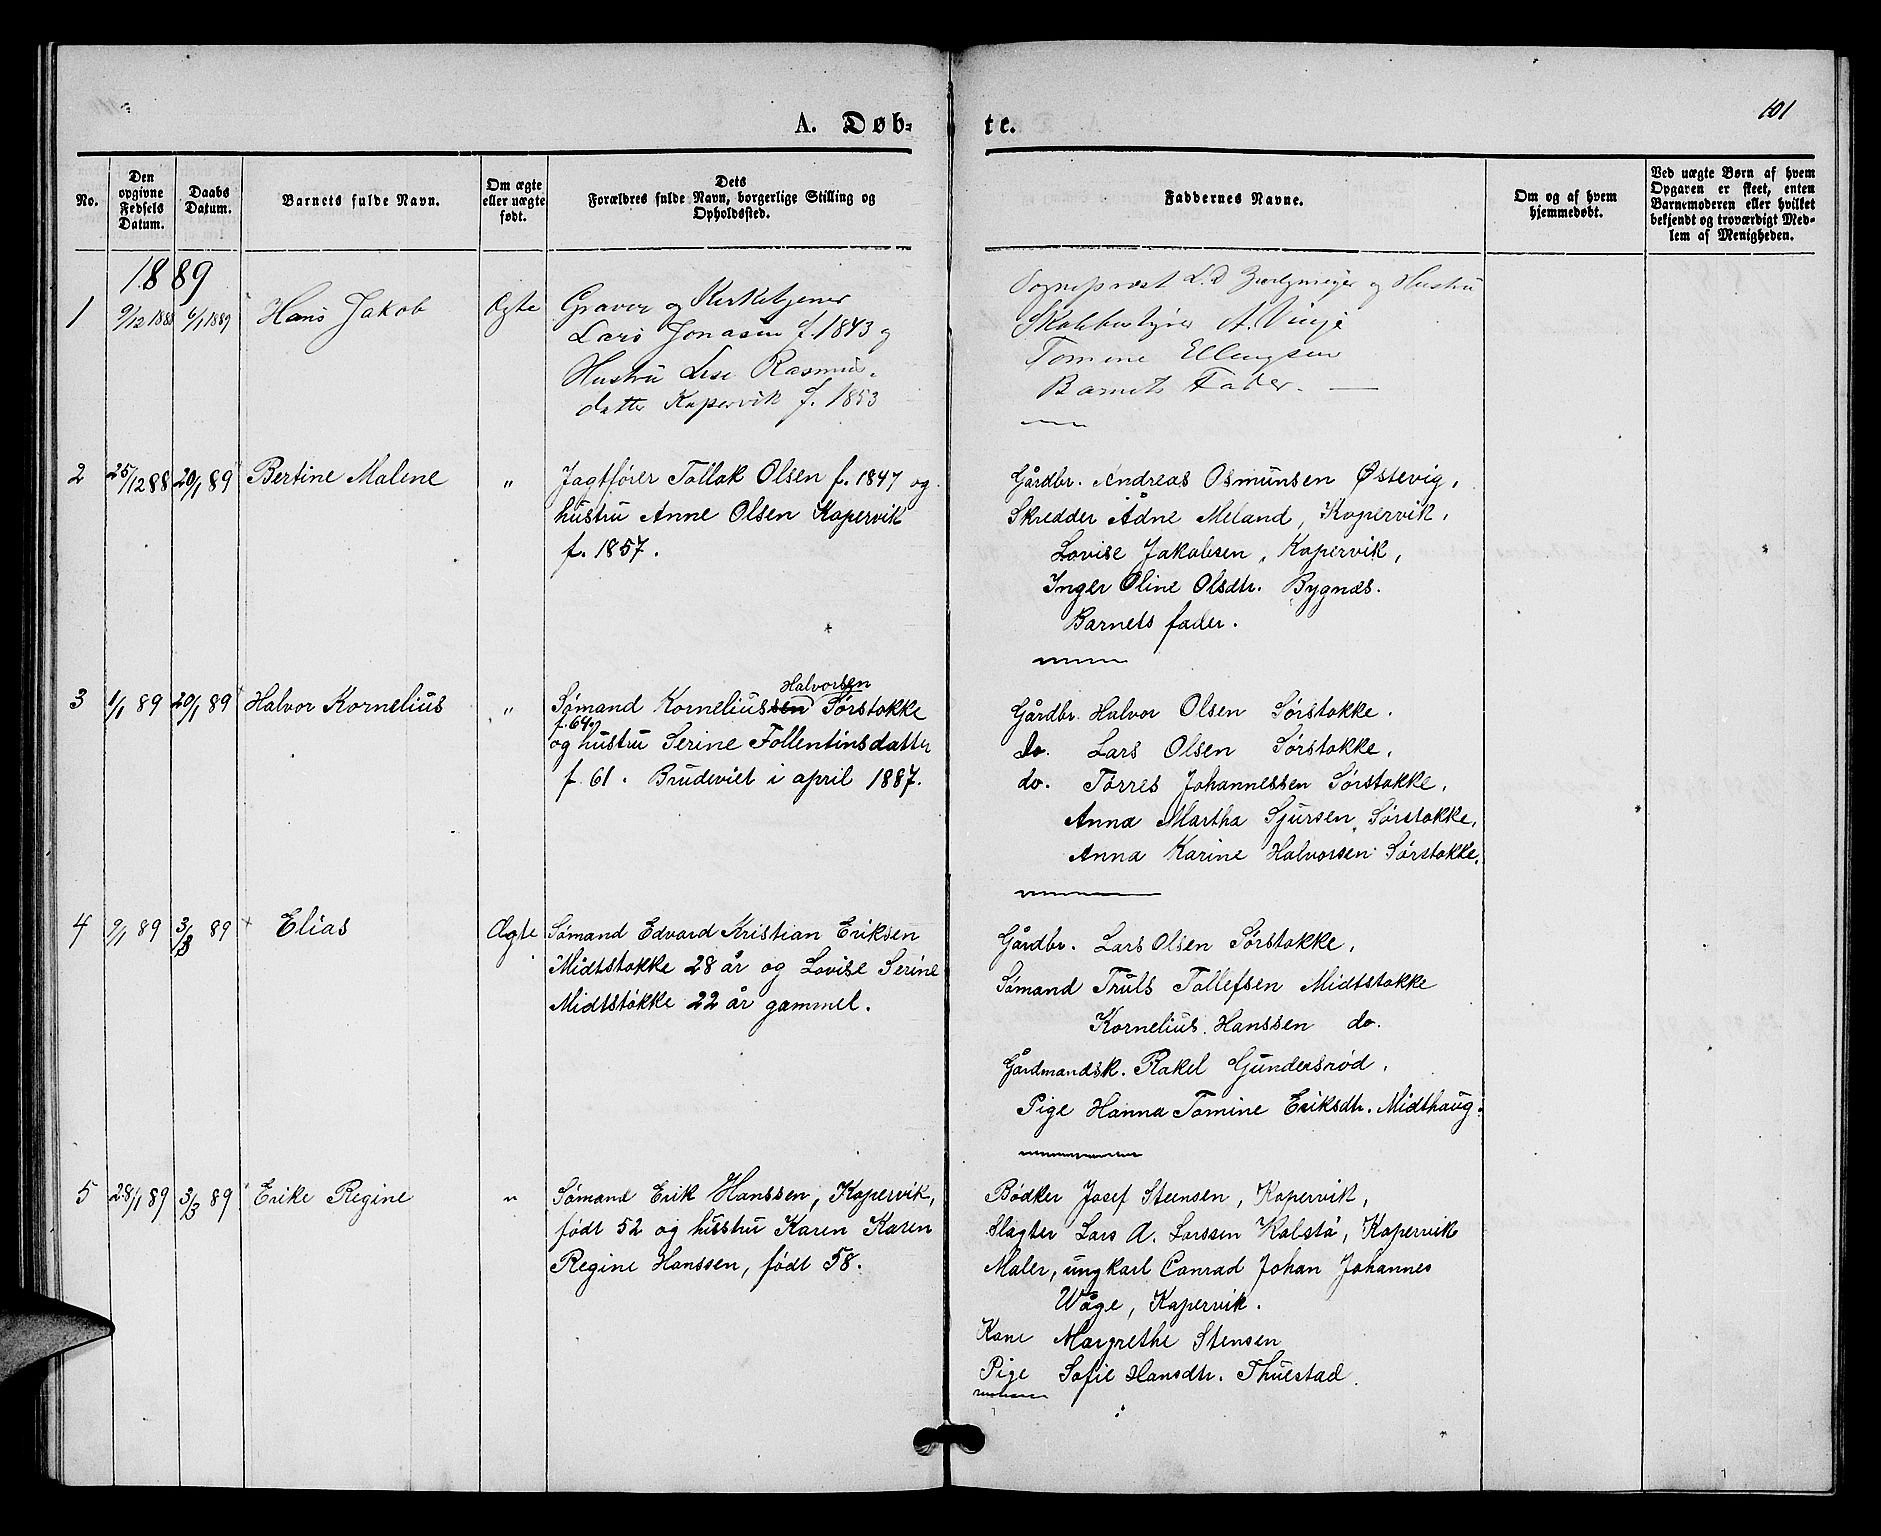 101
A. Døb-
te.
No.
Den opgivne Fedsels Datum.
Daabs Datum.
Barnets fulde Navn.
Om ægte eller uægte født.
Dets Forældres fulde Navn, borgerlige Stilling og Opholdssted.
Faddernes Navne.
Om og af hvem hjemmedøbt.
Ved uægte Børn af hvem Opgaven er skeet, enten Barnemoderen eller hvilket bekjendt og troværdigt Medlem af Menigheden.
1889
1 9/12 1888 6/1 1889 Hans Jakob Ægte Graver og Kirketjener
Lars Jonasen f. 1843 og
Hustru Lise Rasmus-
datter Kopervik f. 1853
Sognepræst L.D. og Hustru
Skolebestyrer A. Vinje
Tomine Ellingsen
Barnets Fader. —
2 25/12 88 20/1 89 Bertine Malene " Jagtfører Tollak Olsen f. 1847 og
hustru Anne Olsen Kopervik
f. 1857.
Gårdbr. Andreas Osmunsen Østevig,
Skredder Ådne Meland, Kopervik,
Lovise Jakobsen, Kopervik,
Inger Oline Olsdtr. Bygnæs.
Barnets fader.
3 1/1 89 20/1 89 Halvor Kornelius " Sømand Korneliussen Halvorsen Sørstokke
f. 64
og hustru Serine Follentinsdatter
f. 61. Brudeviet i april 1887.
Gårdbr. Halvor Olsen Sørstokke.
do. Lars Olsen Sørstokke,
do. Torres Johannessen Sørstokke,
Anna Martha Sjursen Sørstokke,
Anna Karine Halvorsen Sørstokke.
4 9/1 89 3/3 89 Elias Ægte Sømand Edvard Kristian Eriksen
Midtstokke 28 år og Lovise Serine
Midtstokke 22 år gammel.
Gårdbr. Lars Olsen Sørstokke,
Sømand Truls Tollefsen Midtstokke
Kornelius Hanssen do.
Gårdmandsk. Rakel Gundersrød,
Pige Hanna Tomine Eriksdtr. Midthaug.
5 28/1 89 3/3 89 Erike Regine " Sømand Erik Hanssen, Kopervik,
født 52 og hustru Karen Karen
Regine Hanssen, født 58.
Bødker Josef Steensen, Kopervik,
Slagter Lars A. Larssen Kolstå, Kopervik
Maler, ungkarl Conrad Johan Johannes
Våge, Kopervik.
Kone Margrethe Stensen
Pige Sofie Hansdtr. Thuestad.